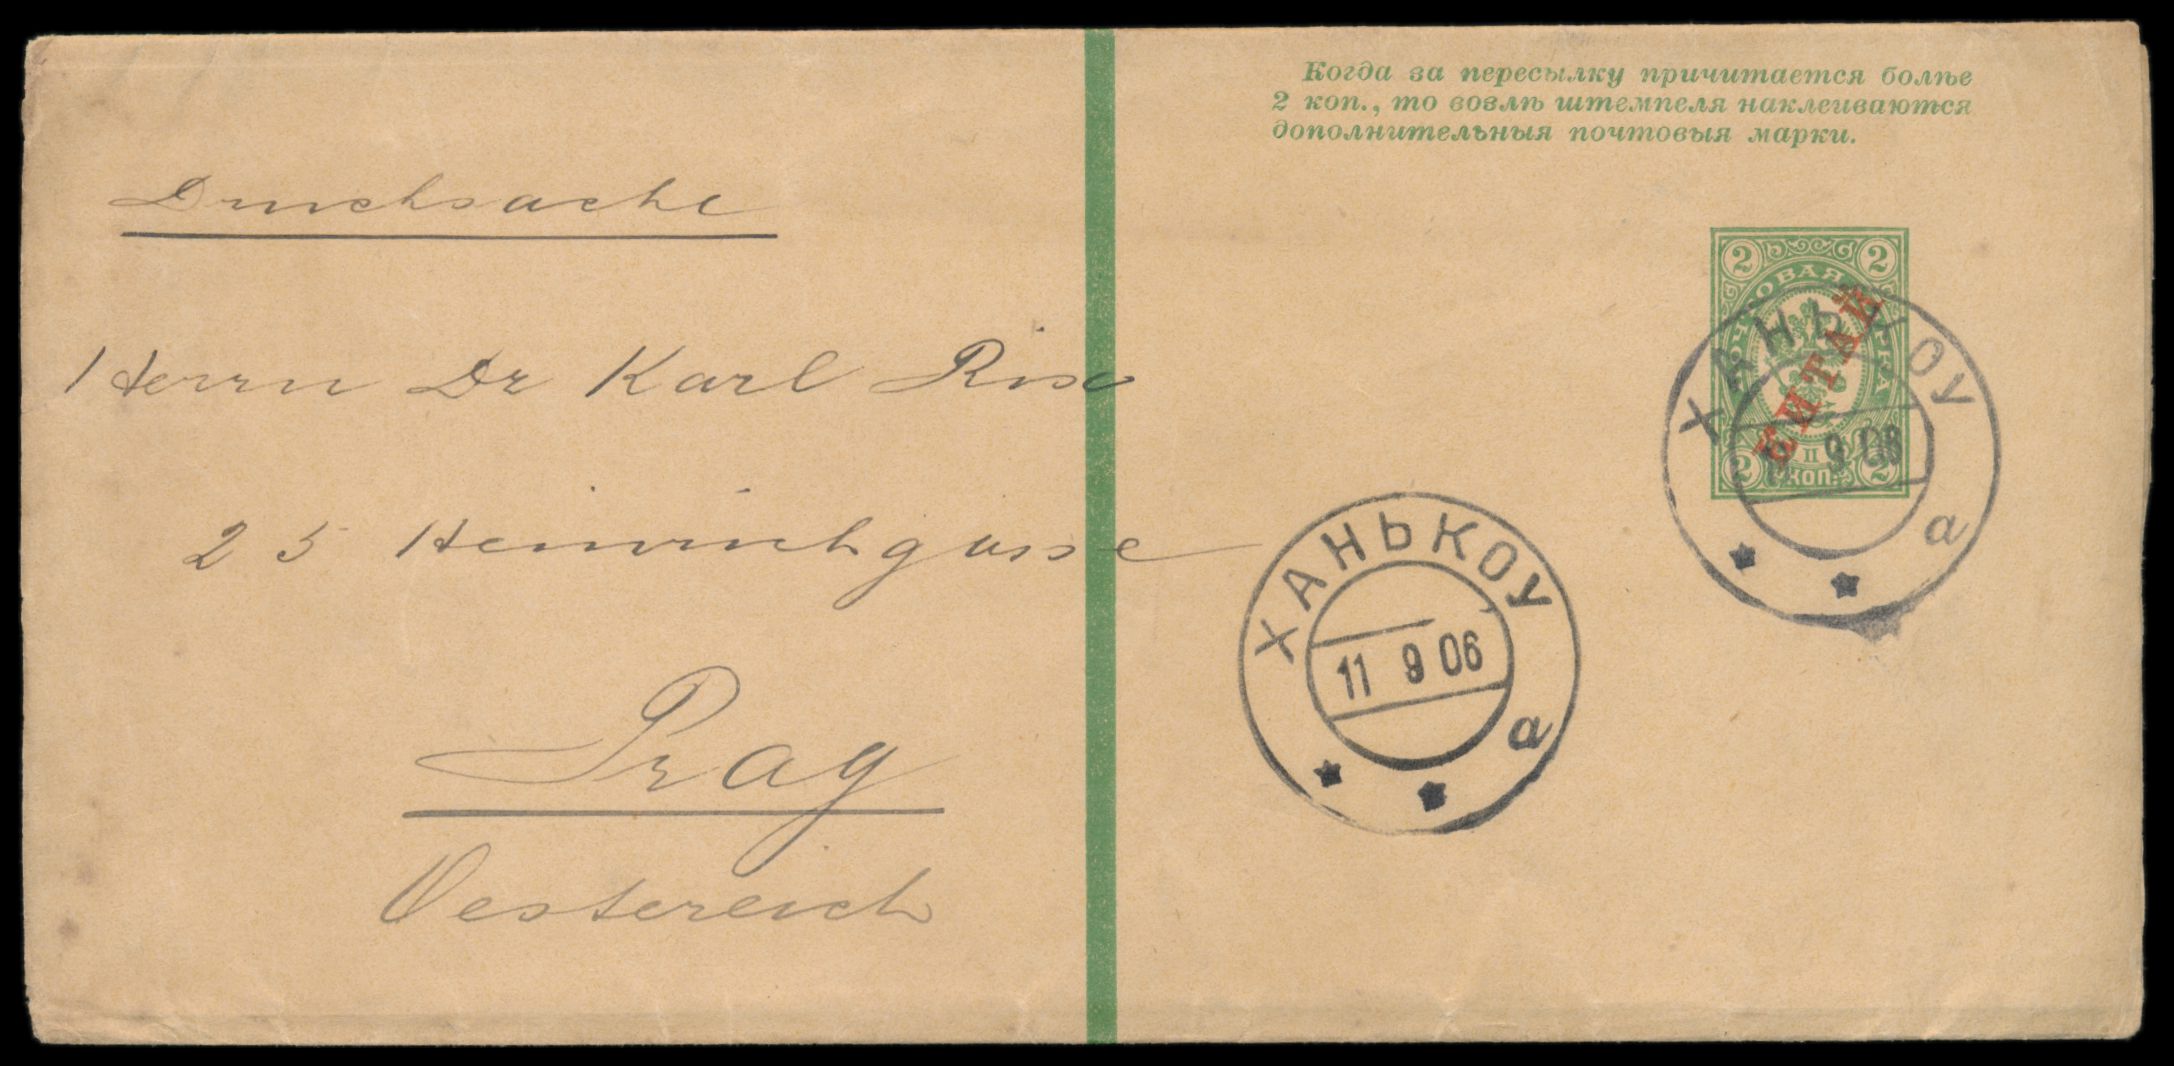 Когда за пересылку причитается болѣе
2 коп., то возлѣ штемпеля наклеиваются
дополнительныя почтовыя марки.
Drucksache
Herrn Dr Karl
25 Heinrichgasse
Prag
Oestereich
2 2
ПОЧТОВАЯ МАРКА
КИТАЙ
2 КОП. 2
ХАНЬКОУ
11 9 06
а
ХАНЬКОУ
11 9 06
а